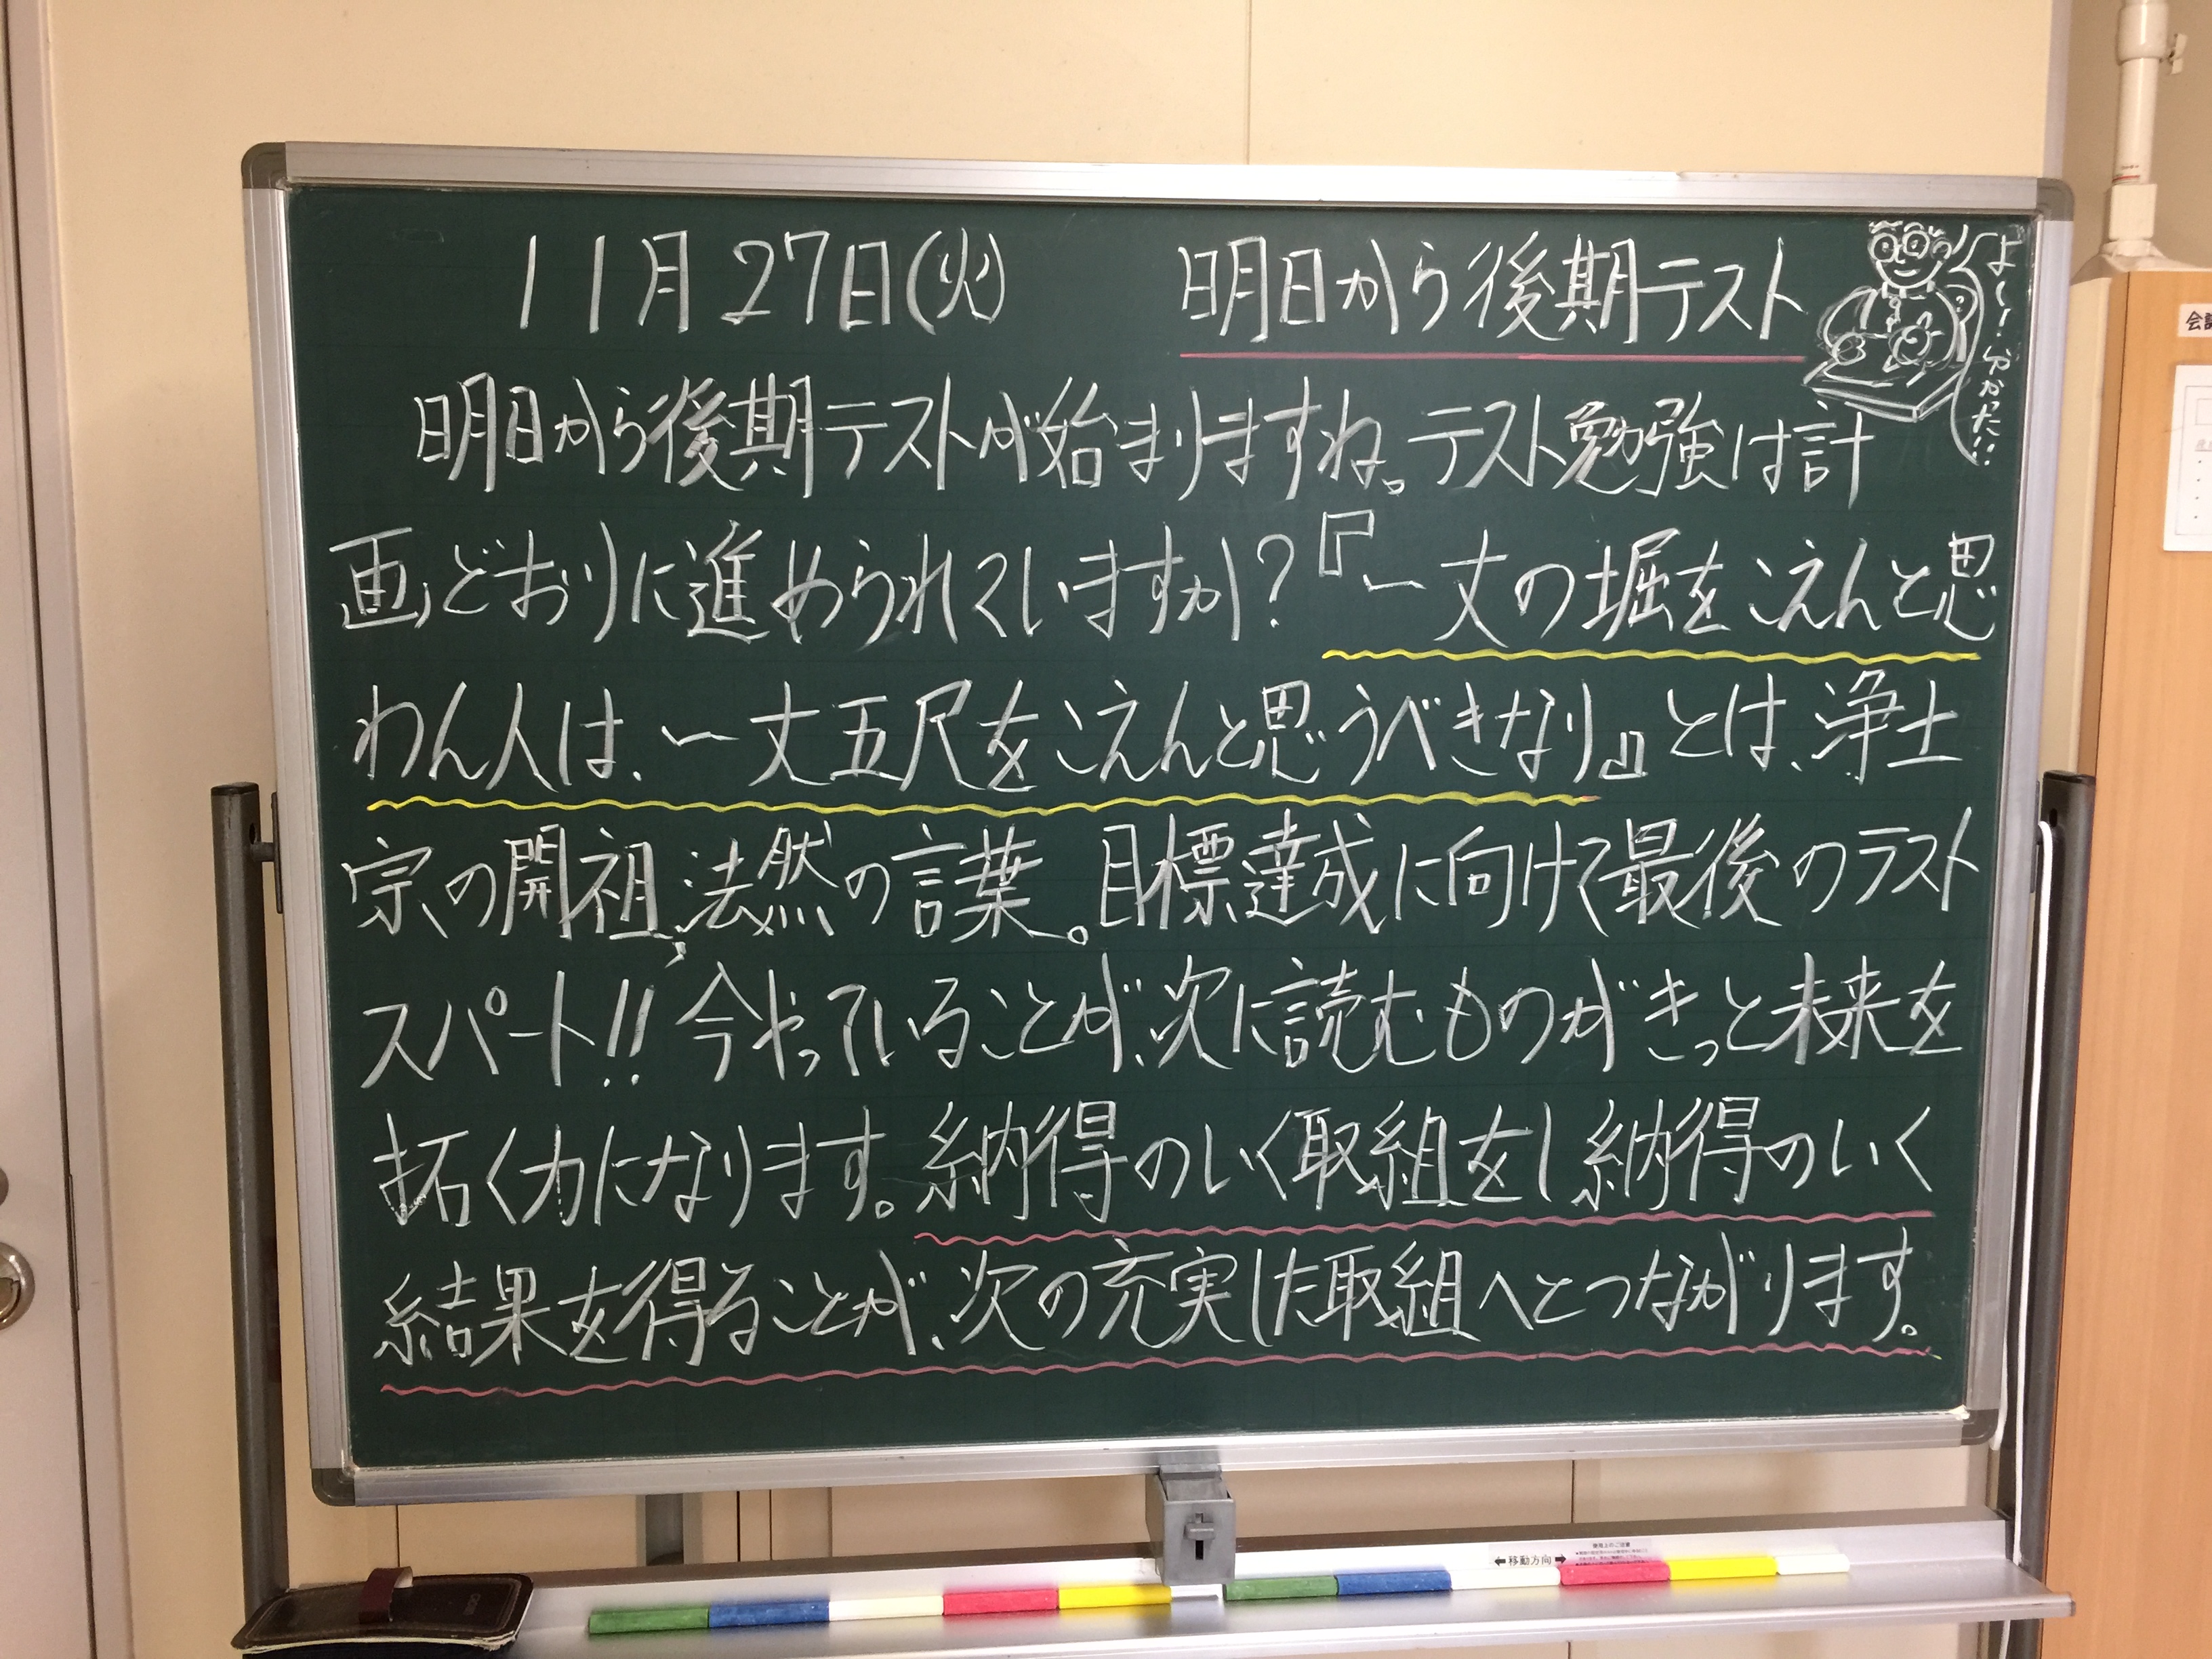 11月27日(火) 明日から後期テスト
よし!分かった!!
明日から後期テストが始まりますね。テスト勉強は計
画どおりに進められていますか?『一丈の堀をこえんと思
わん人は、一丈五尺をこえんと思うべきなり』とは、浄土
宗の開祖、法然の言葉。目標達成に向けて最後のテスト
スパート!!今やっていることが、次に読むものがきっと未来を
拓く力になります。納得のいく取組をし納得のいく
結果を得ることが、次の充実した取組へとつながります。
←移動方向→